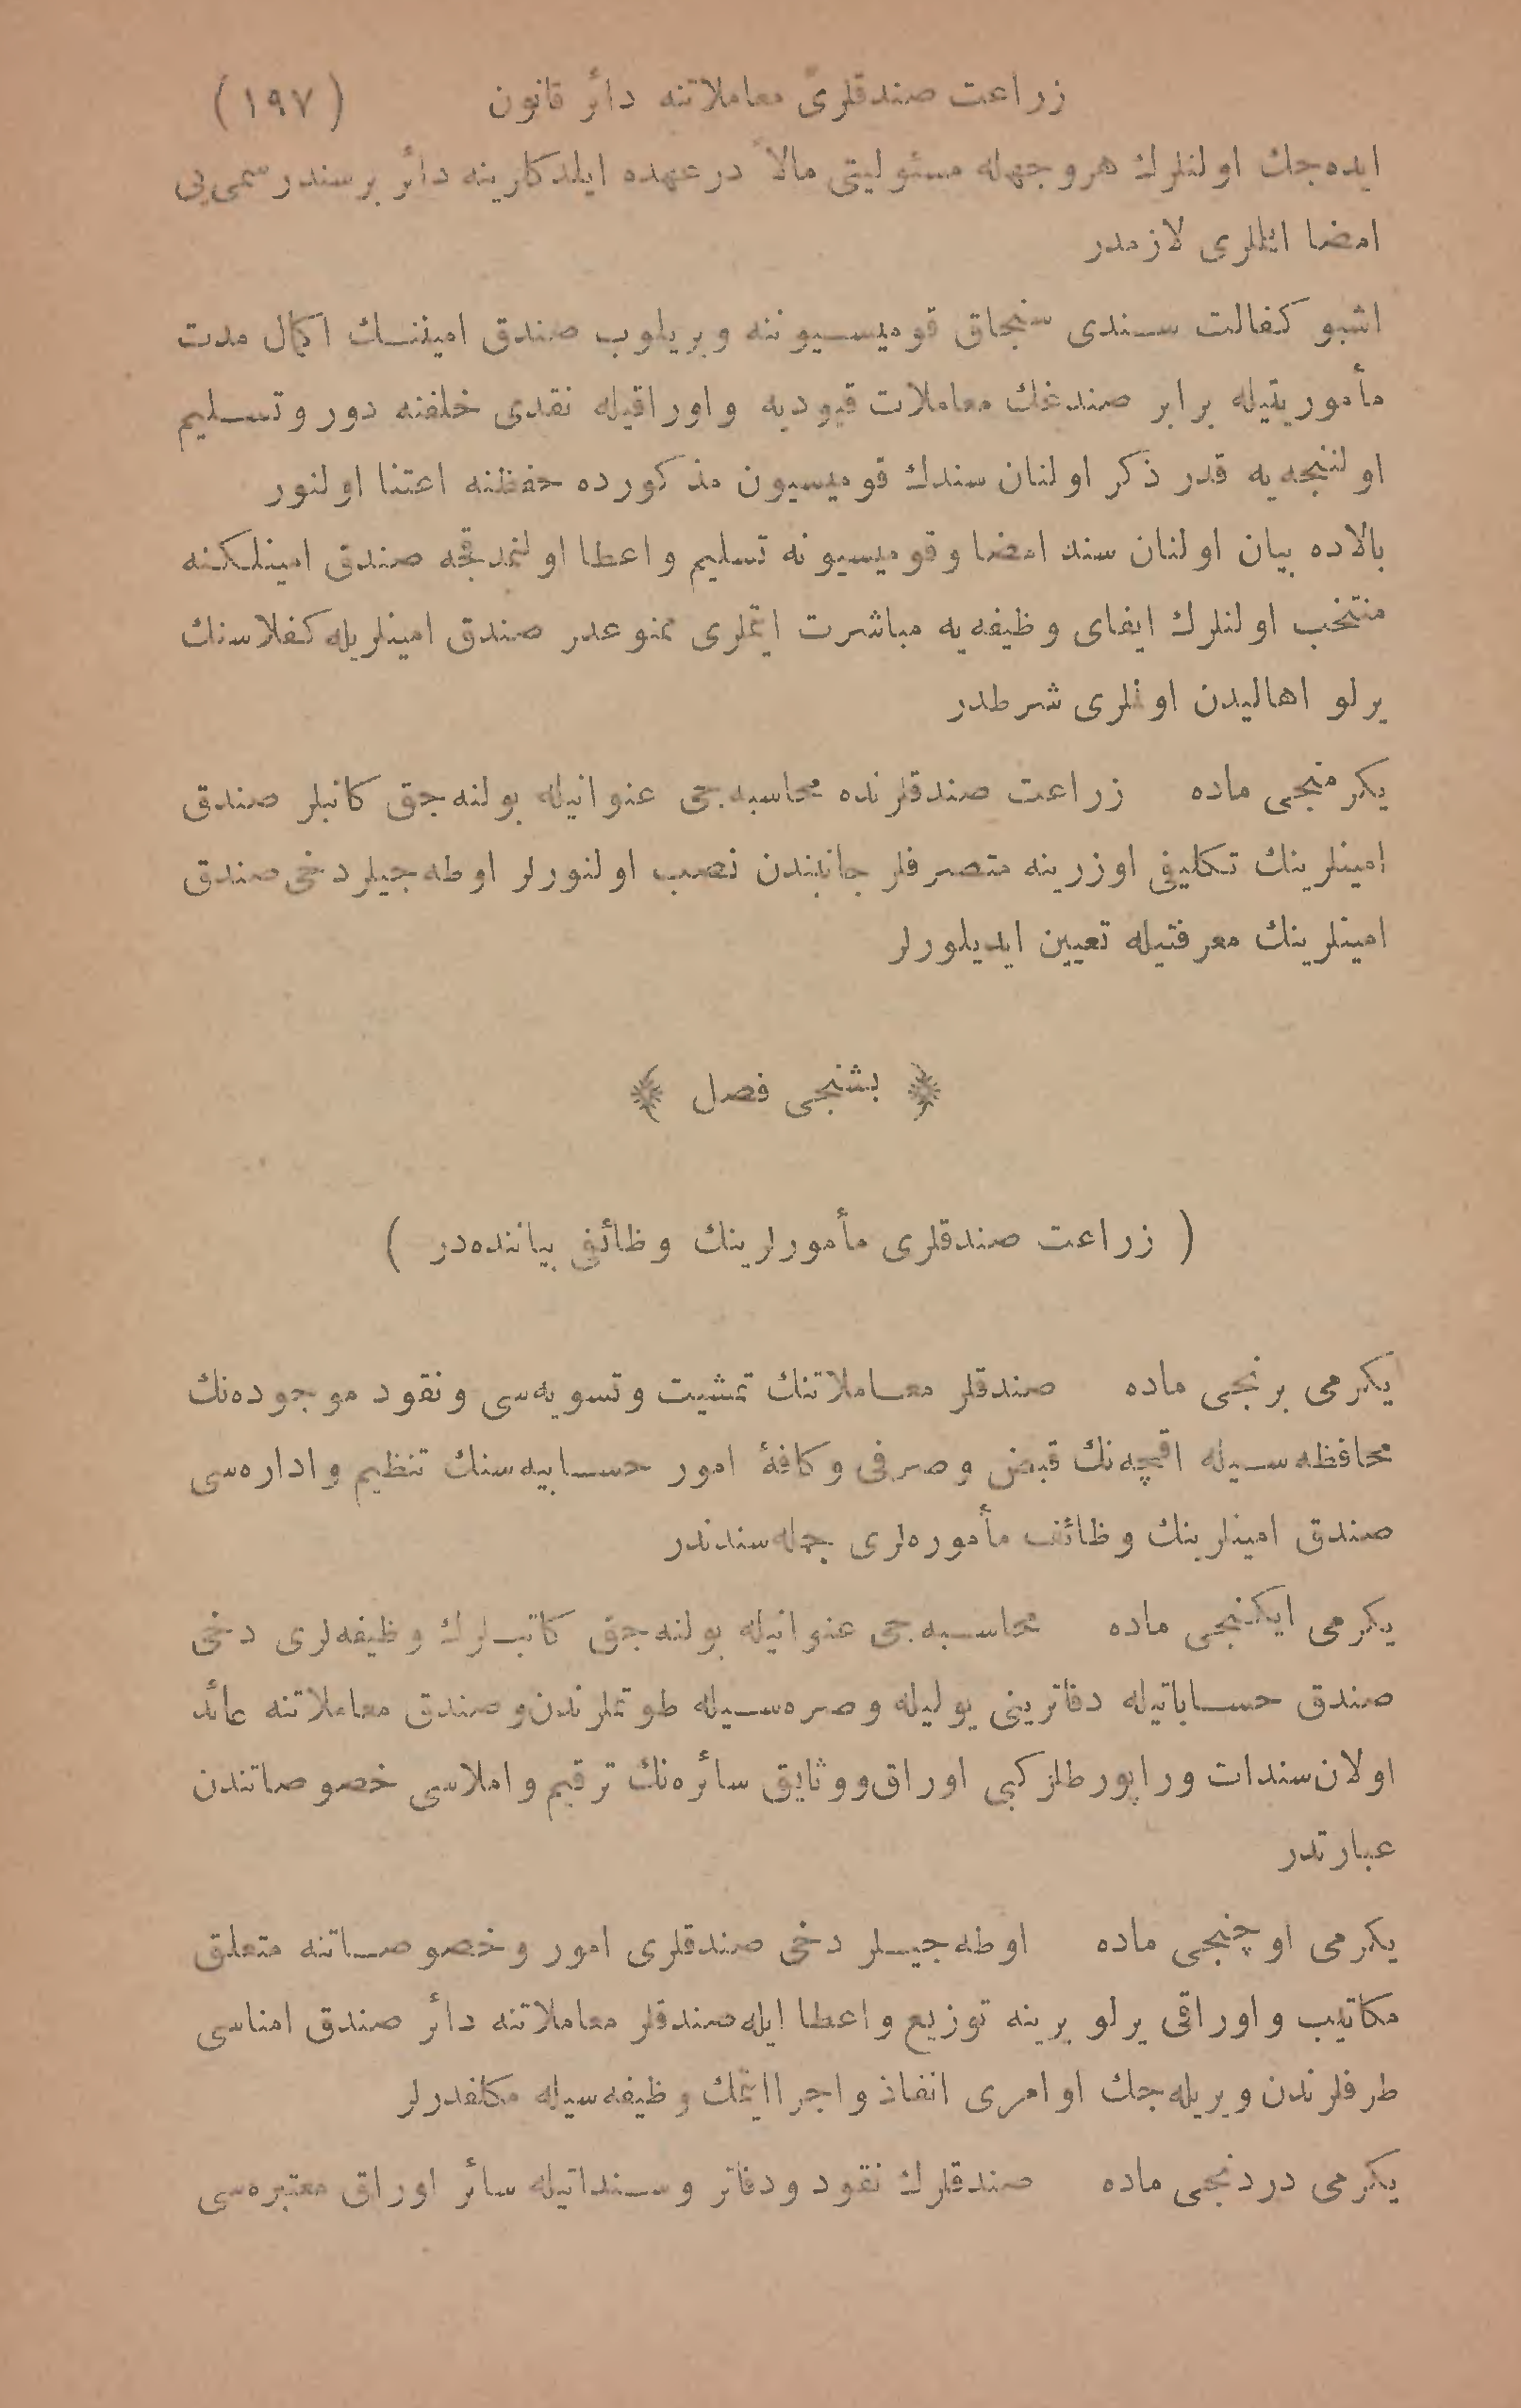 زراعت صندقلری معاملاتنه دائر قانون (١٩٧)
ایده‌جك اولنلرك هروجهله مسئولیتی مالاً درعهده ایلدکلرینه دائر برسندرسمی‌یی
امضا ایتملری لازمدر
اشبو کفالت سندی سنجاق قومیسیوننه ویریلوب صندق امیننك اکمال مدت
مأموریتیله برابر صندغك معاملات قیودیه واوراقیله نقدی خلفنه دور وتسلیم
اولننجه‌یه قدر ذکر اولنان سندك قومیسیون مذکورده حفظنه اعتنا اولنور
بالاده بیان اولنان سند امضا وقومیسیونه تسلیم واعطا اولنمدقجه صندق امینلکنه
منتخب اولنلرك ایفای وظیفه‌یه مباشرت ایتملری ممنوعدر صندق امینلریله کفلاسنك
یرلو اهالیدن اولملری شرطدر
یکرمنجی ماده زراعت صندقلرنده محاسبه‌جی عنوانیله بولنه‌جق کاتبلر صندق
امینلرینك تکلیفی اوزرینه متصرفلر جانبندن نصب اولنورلر اوطه‌جیلر دخی صندق
امینلرینك معرفتیله تعیین ایدیلورلر
﴿ بشنجی فصل ﴾
( زراعت صندقلری مأمورلرینك وظائفی بیاننده‌در )
یکرمی برنجی ماده صندقلر معاملاتنك تمشیت وتسویه‌سی ونقود موجوده‌نك
محافظه‌سیله اقچه‌نك قبض وصرفی وکافهٔ امور حسابیه‌سنك تنظیم واداره‌سی
صندق امینلرینك وظائف مأموره‌لری جمله‌سندندر
یکرمی ایکنجی ماده محاسبه‌جی عنوانیله بولنه‌جق کاتب‌لرك وظیفه‌لری دخی
صندق حساباتیله دفاترینی یولیله وصره‌سیله طوتملرندن‌وصندق معاملاتنه عائد
اولان‌سندات وراپورطلر کبی اوراق‌ووثایق سائره‌نك ترقیم واملاسی خصوصاتندن
عبارتدر
یکرمی اوچنجی ماده اوطه‌جیلر دخی صندقلری امور وخصوصاتنه متعلق
مکاتیب واوراقی یرلو یرینه توزیع واعطا ایله‌صندقلر معاملاتنه دائر صندق امناسی
طرفلرندن ویریله‌جك اوامری انفاذ واجراایتمك وظیفه‌سیله مکلفدرلر
یکرمی دردنجی ماده صندقلرك نقود ودفاتر وسنداتیله سائر اوراق معتبره‌سی